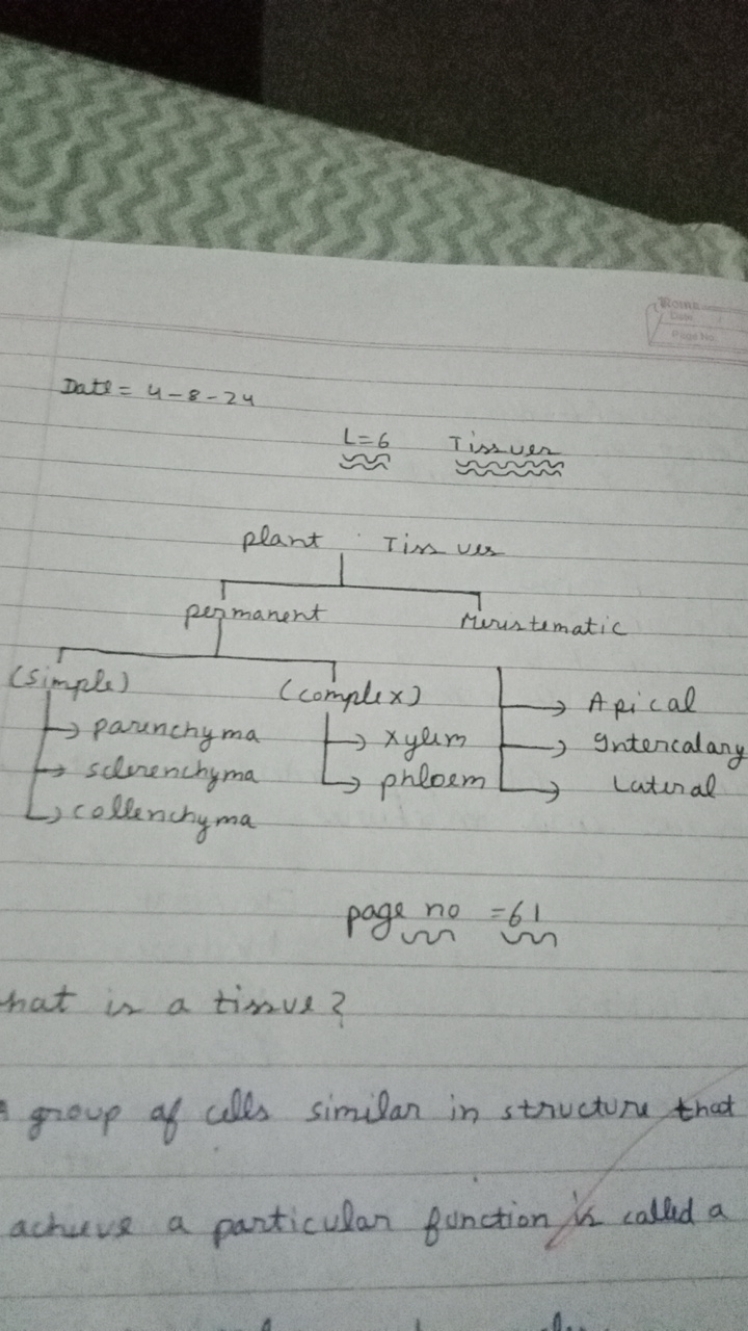 Date = 4-8-24
L=6 Tissues
plant Tissues
permanent Meristematic
(Simple) (complex) Apical
parenchyma xylem Intercalary
sclerenchyma phloem Lateral
collenchyma
page no = 61
hat is a tissue?
A group of cells similar in structure that
achieve a particular function is called a